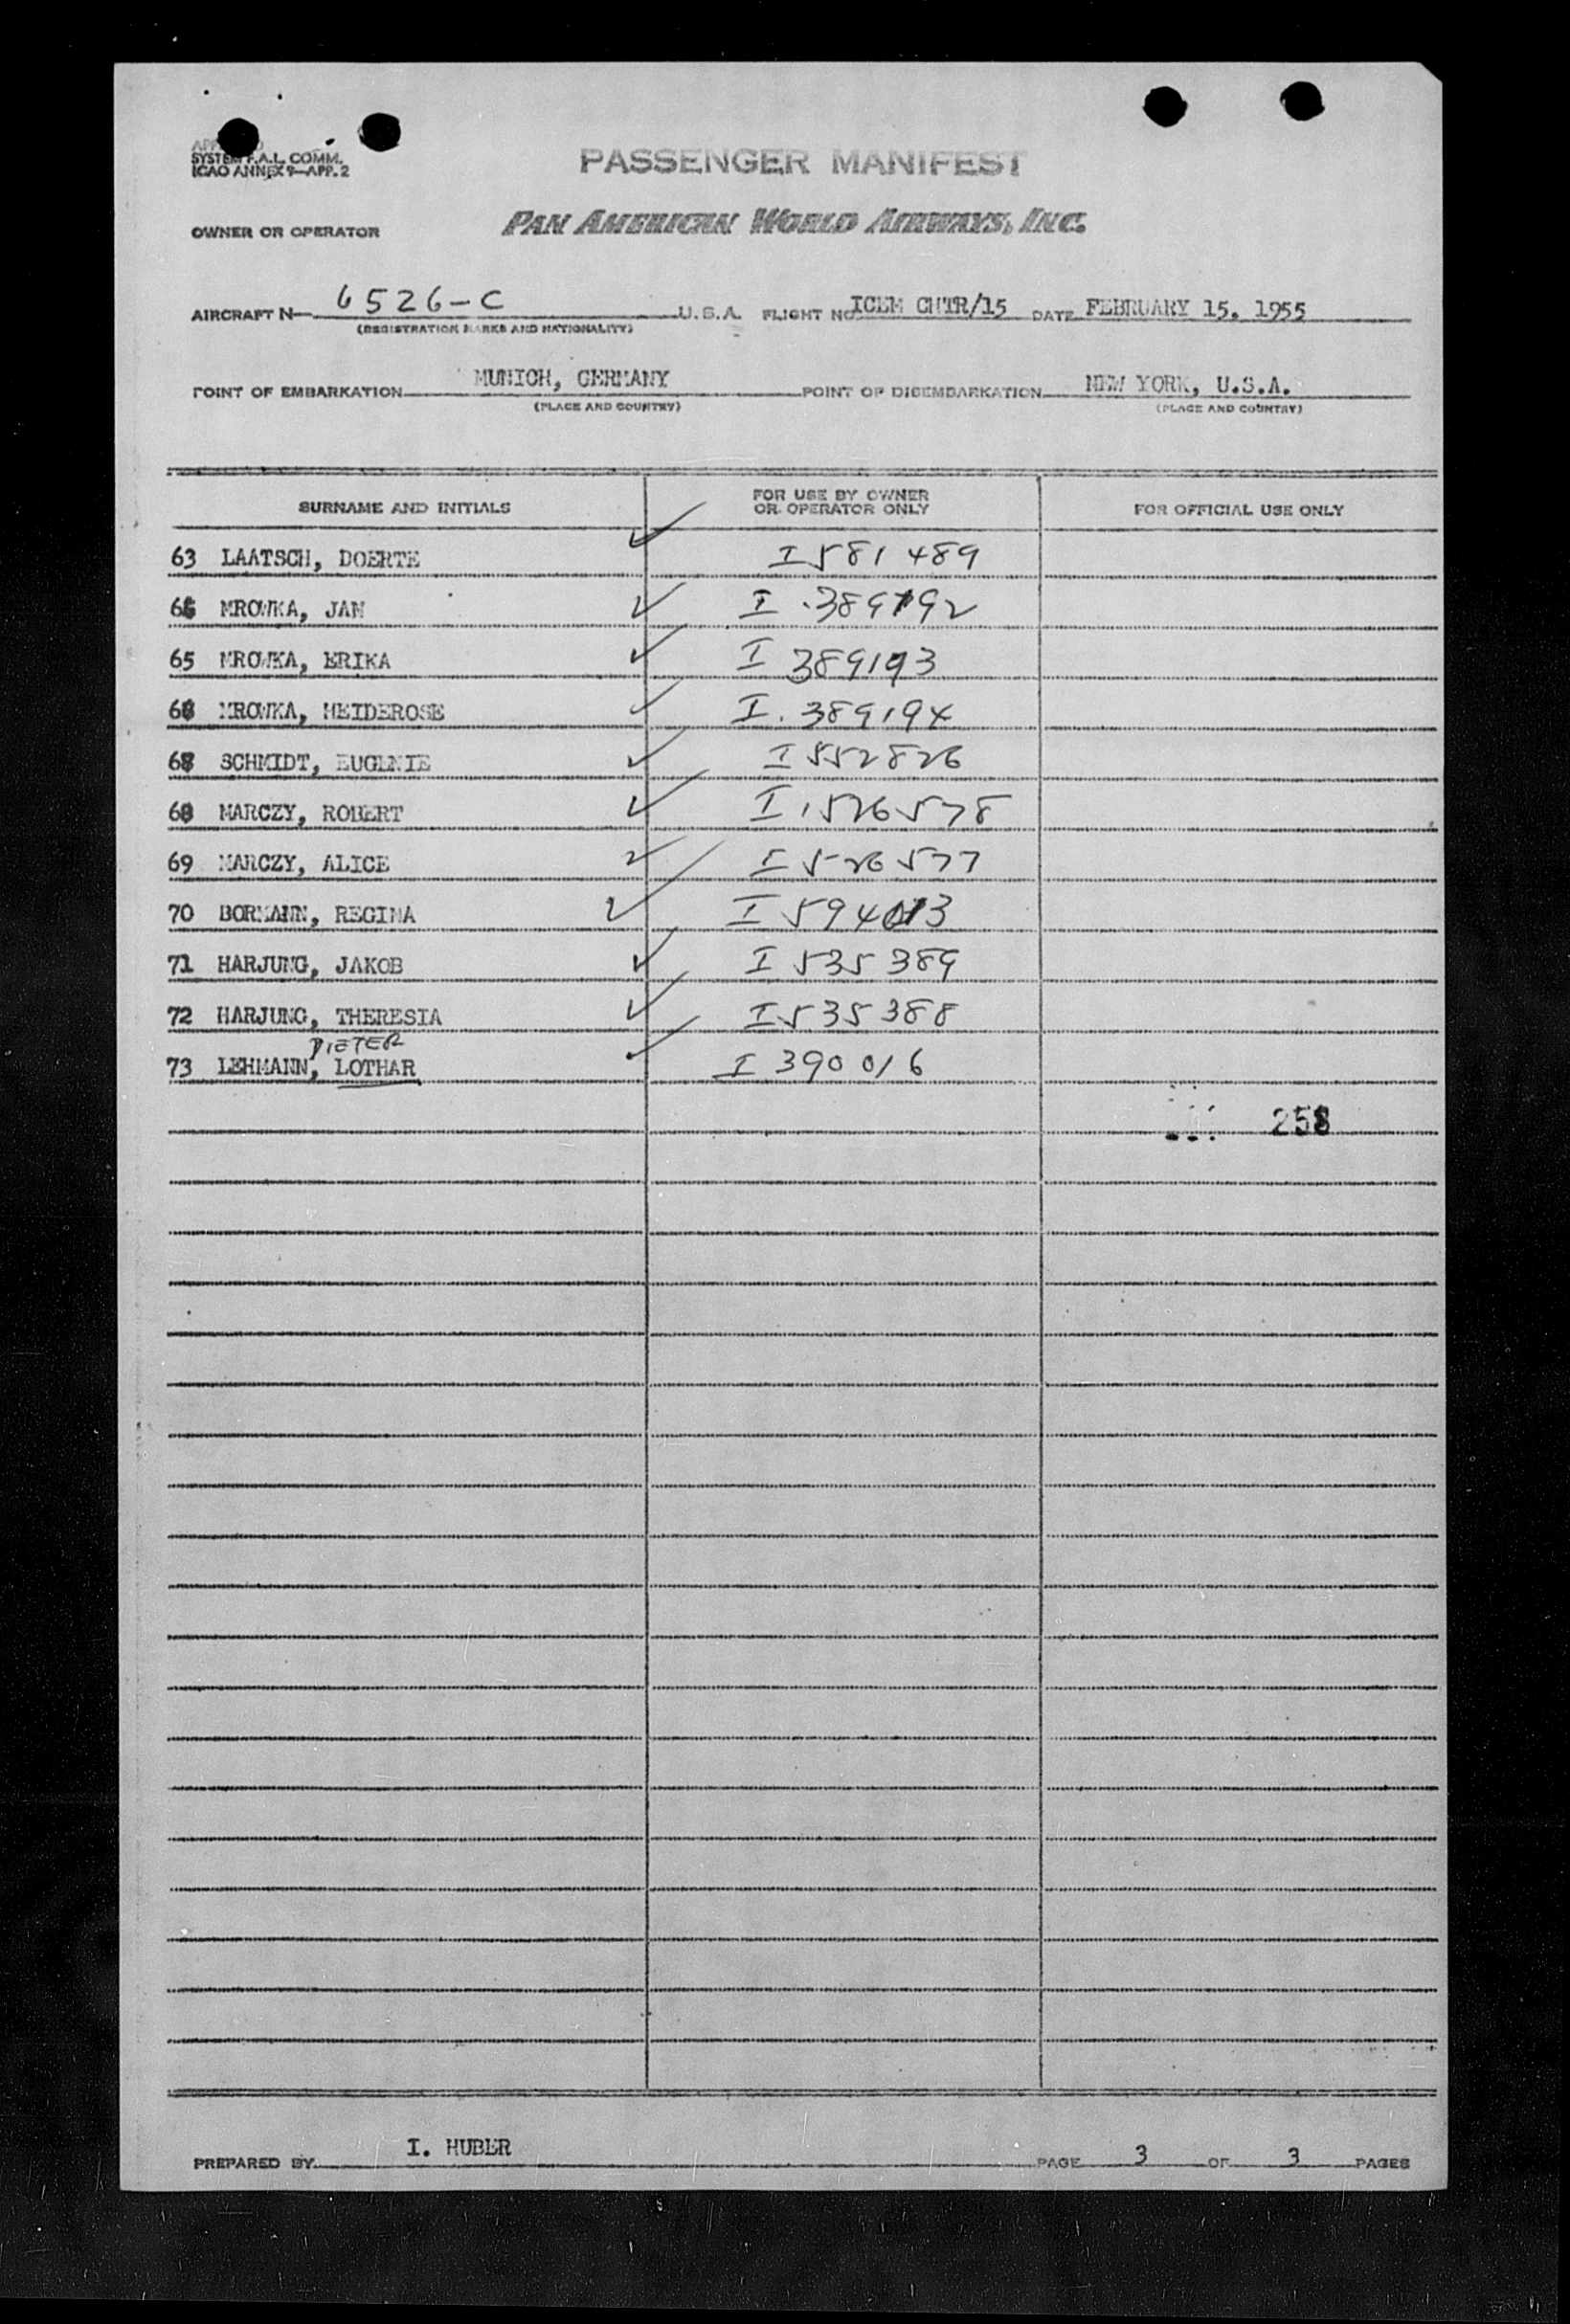 APP
SYSTEM F.A.L. COMM.
ICAO ANNEX 9—APP. 2
PASSENGER MANIFEST
OWNER OR OPERATOR PAN AMERICAN WORLD AIRWAYS, INC.
AIRCRAFT N— 6526-C U.S.A. FLIGHT NO ICEM CHTR/15 DATE FEBRUARY 15. 1955
(REGISTRATION MARKS AND NATIONALITY)
POINT OF EMBARKATION MUNICH, GERMANY POINT OF DISEMBARKATION NEW YORK, U.S.A.
(PLACE AND COUNTRY) (PLACE AND COUNTRY)
SURNAME AND INITIALS FOR USE BY OWNER OR OPERATOR ONLY FOR OFFICIAL USE ONLY
63 LAATSCH, DOERTE ✓ I 581489
64 MROWKA, JAN ✓ I 389192
65 MROWKA, ERIKA ✓ I 389193
66 MROWKA, HEIDEROSE ✓ I. 389194
67 SCHMIDT, EUGENIE ✓ I 552826
68 MARCZY, ROBERT ✓ I 526578
69 MARCZY, ALICE ✓ I 526577
70 BORMANN, REGINA ✓ I 594013
71 HARJUNG, JAKOB ✓ I 535389
72 HARJUNG, THERESIA ✓ I 535388
DIETER
73 LEHMANN, LOTHAR ✓ I 390016
258
PREPARED BY I. HUBER PAGE 3 OF 3 PAGES